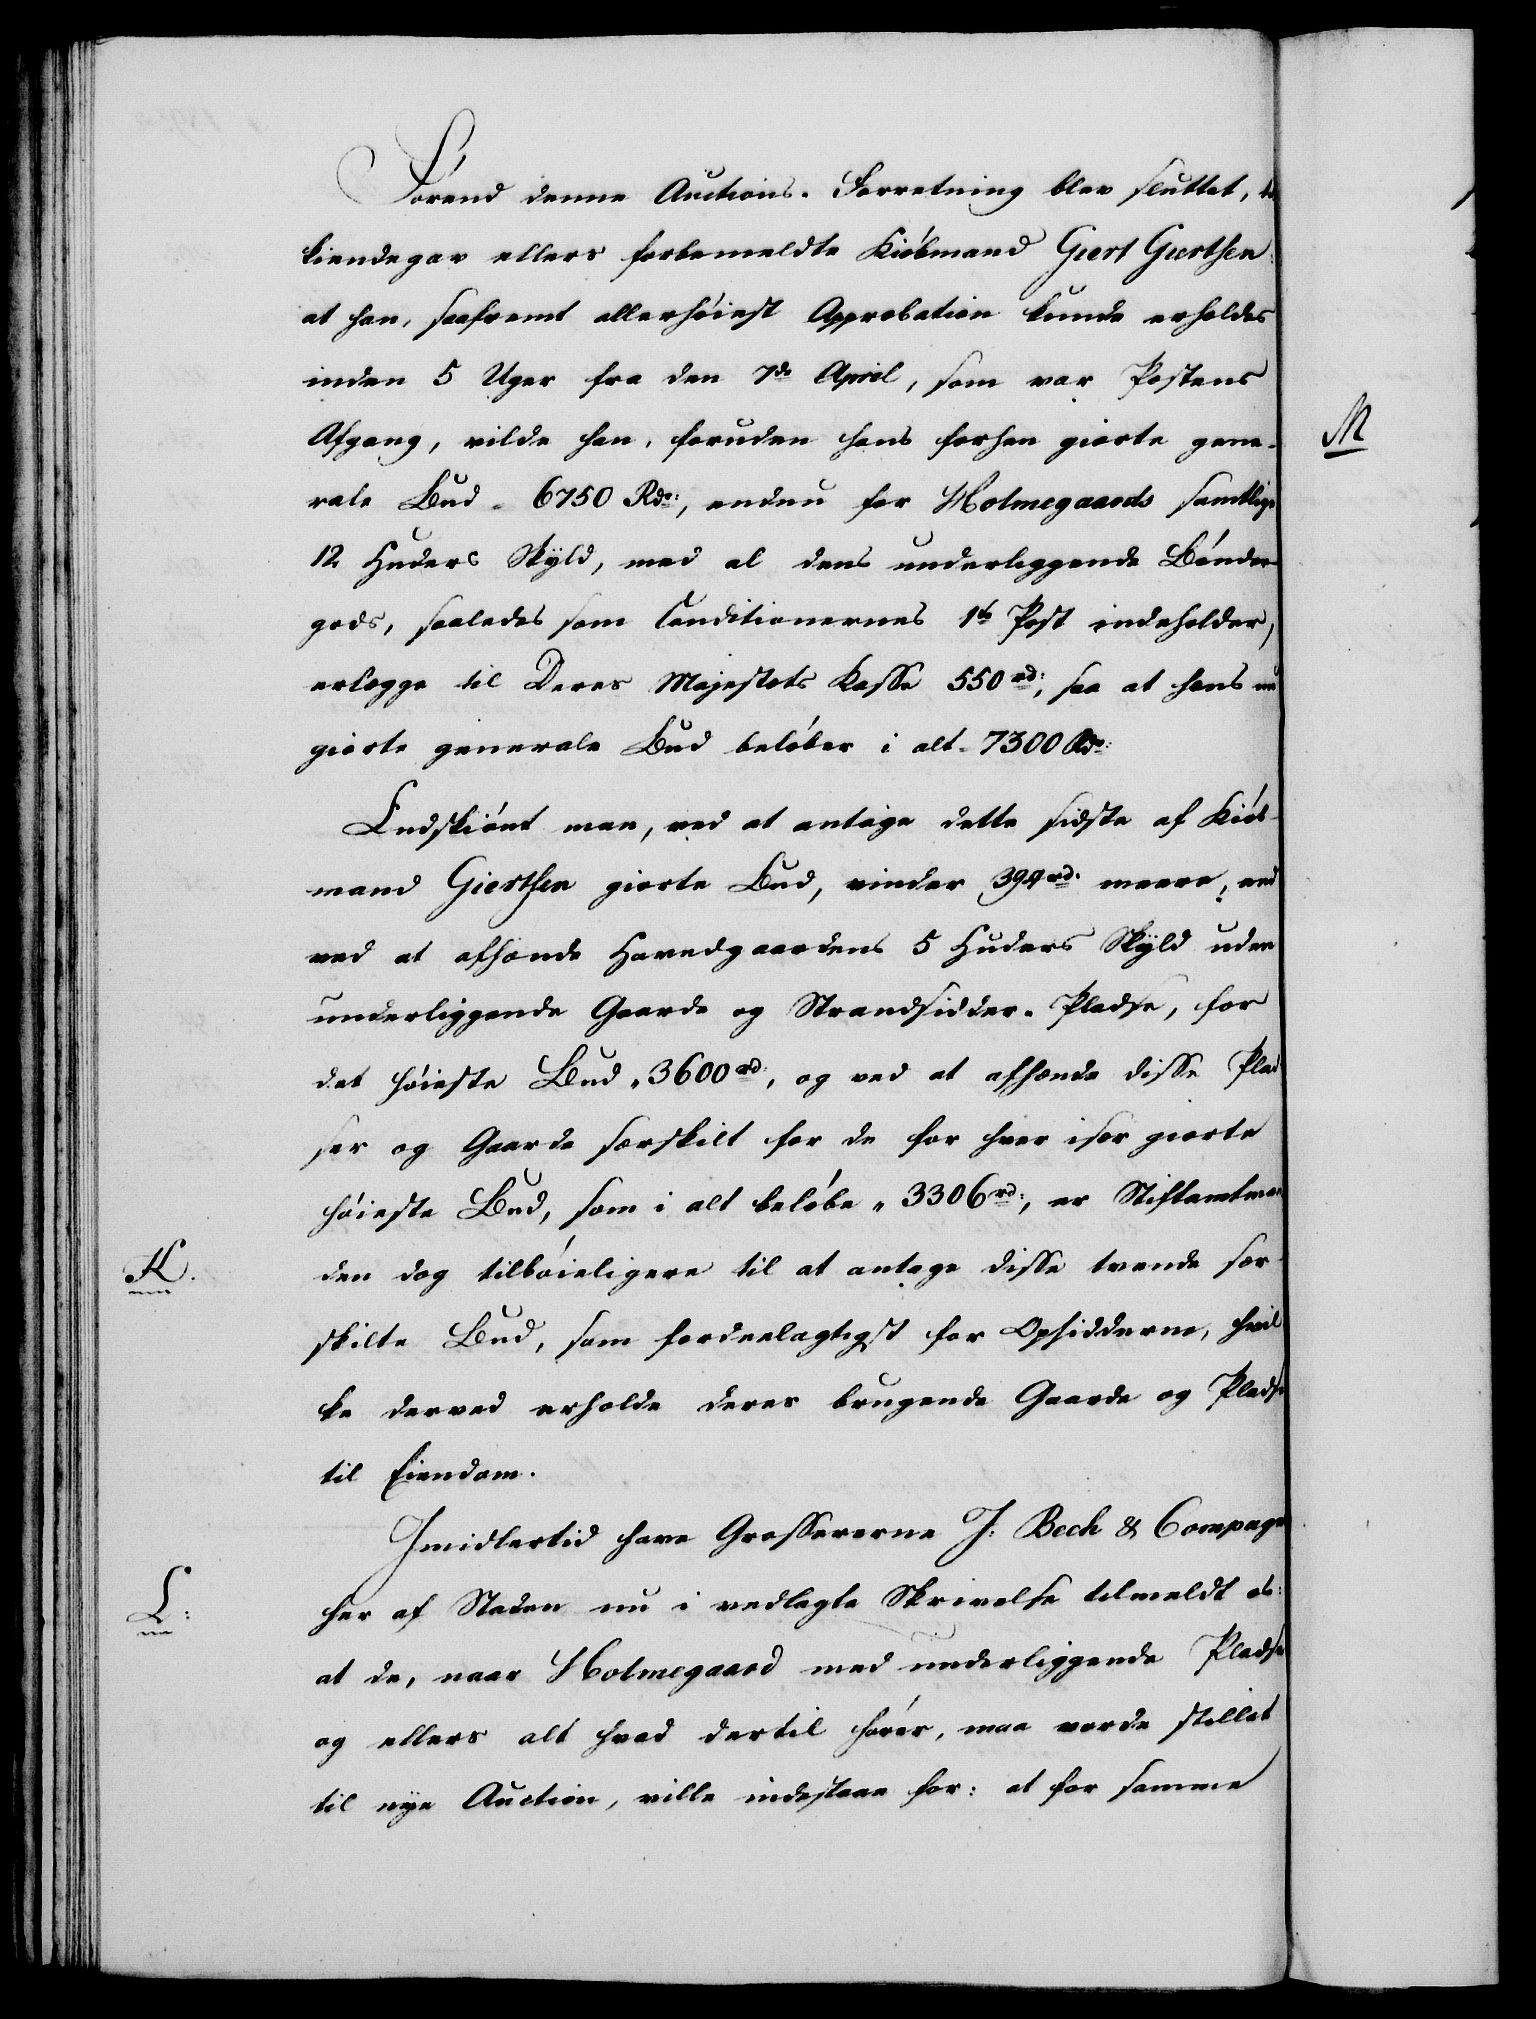 Førend denne Auctions-Forretning blev sluttet,
kiendegav ellers forbemeldte Kiøbmand Giert Giertsen:
at han, saafremt allerhøiest Approbation kunde erholdes
inden 5 Uger fra den 7de April, som var Postens
Afgang, vilde han, foruden hans forhen giorte gene-
rale Bud - 6750 Rdr:, endnu for Holmegaards samtlige
12 Huders Skyld, med al dens underliggende Bønder
gods, saaledes som Conditionernes 1te Post indeholder,
erlægge til Deres Majestæts Kasse 550 rd:, saa at hans nu
giorte generale Bud beløber i alt - 7300 Rdr:
Endskiønt man, ved at antage dette sidste af Kiøb-
mand Giertsen giorte Bud, vinder 394 rd. meere, end
ved at afhænde Hovedgaardens 5 Huders Skyld uden
underliggende Gaarde og Strandsidder-Pladse, for
det høieste Bud, 3600 rd:, og ved at afhænde disse Plad
ser og Gaarde særskilt for de for hver især giorte
høieste Bud, som i alt beløbe, 3306 rd:, er Stiftamtman
K.
den dog tilbøieligere til at antage disse tvende sær-
skilte Bud, som fordeelagtigst for Opsidderne, hvil
ke derved erholde deres brugende Gaarde og Pladse
til Eiendom.
Imidlertid have Grossererne J: Beck & Compagn
L:
her af Staden nu i vedlagte Skrivelse tilmeldt os:
at de, naar Holmegaard med underliggende Pladse
og ellers alt hvad dertil hører, maa vorde stillet
til nye Auction, ville indestaae for: at for samme
M